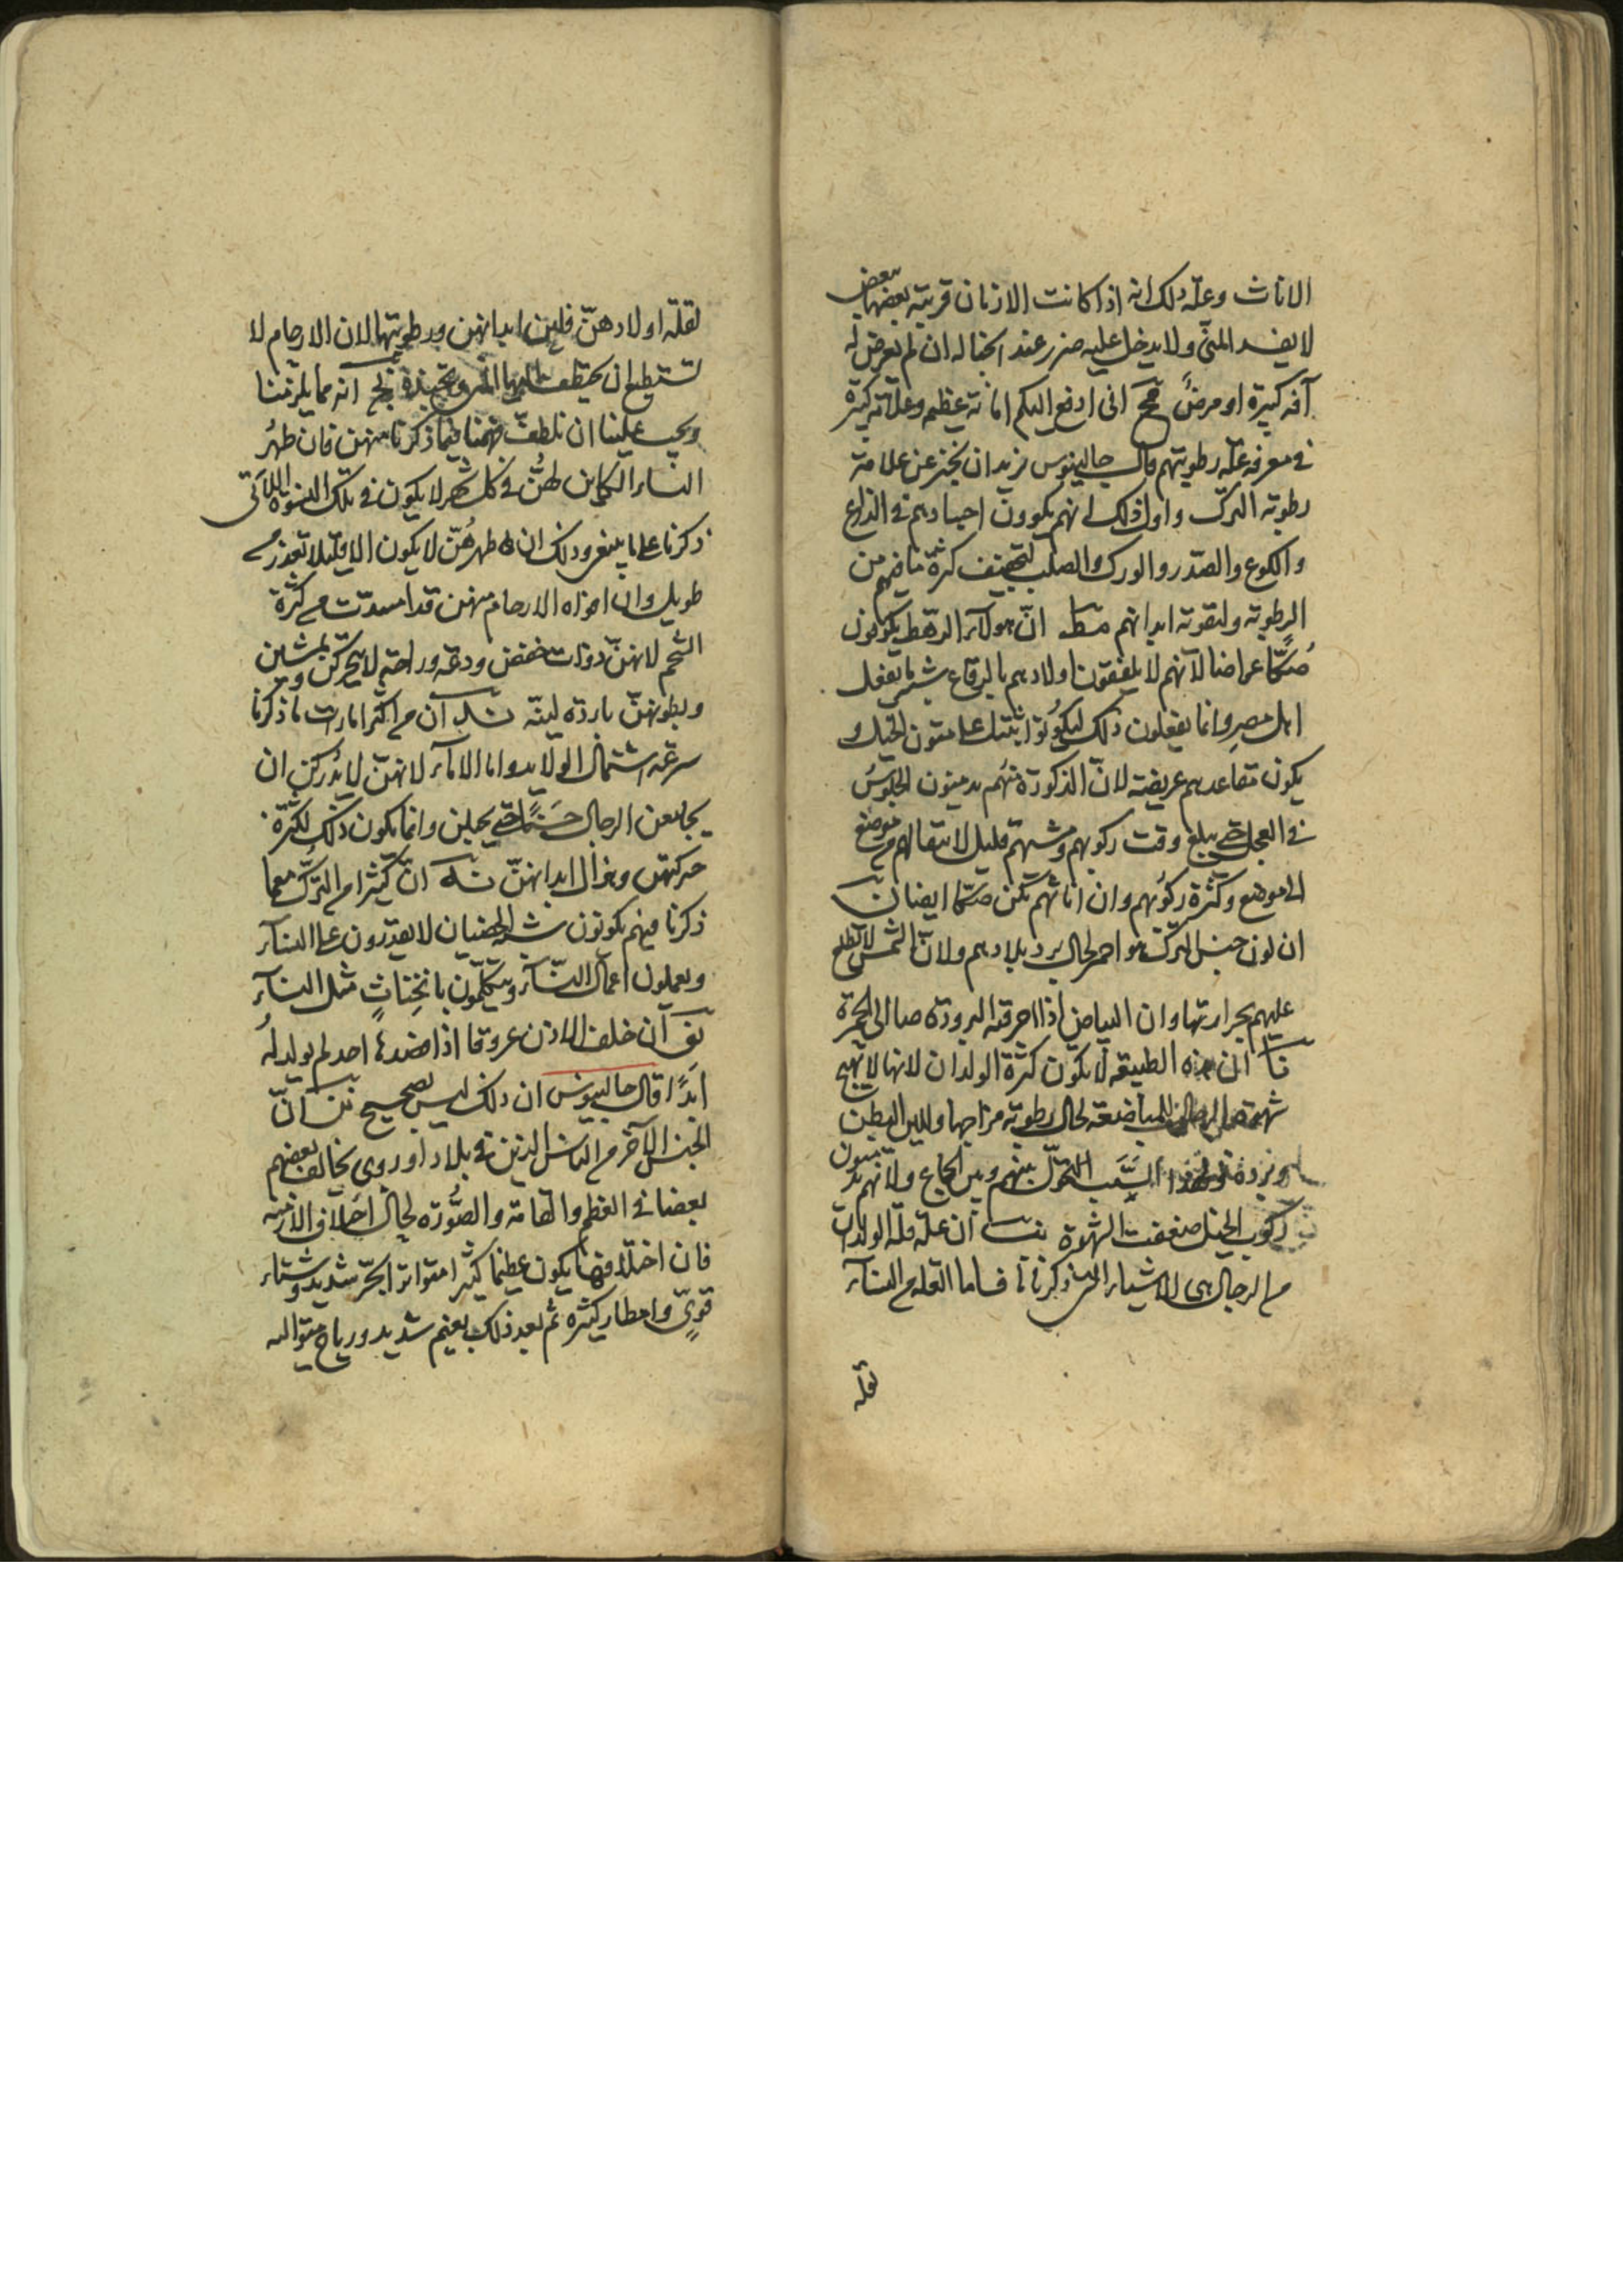 الاناث وعلة ذلك انه اذا كانت الازمان قريبة بعضها من بعض
لا يفسد المنى ولا يدخل عليه ضرر عند اجتماله ان لم يعرض له
آفة كبيرة او مرض قمح انى ادفع اليكم امانة عظيمه وعلامة كبيرة
فى معرفه علة رطوبتهم قال جالينوس نريد ان نخبر عن علامة
رطوبة الترك واول ذلك انهم يكوون اجسادهم فى الذراع
والكوع والصدر والورك والصلب لتجفيف كثرة ما فيهم من
الرطوبة ولتقوية ابدانهم قمط ان هولآء الرهط يكونون
عراضا لانهم لا يلفقون اولادهم بالرقاع شبه ما يفعل
اهل مصر وانما يفعلون ذلك ليكونوا اثبت على متون الخيل و
يكون مقاعدهم عريضة لان الذكورة منهم يدمنون الجلوس
فى العجل حتى يبلغ وقت ركوبهم ومشيهم قليل لانتقالهم من موضع
الى موضع وكثرة ركوبهم وان اناثهم تكن ايضا
ان لون جنس الترك هو احمر لحال برد بلادهم ولان الشمس لا تطلع
عليهم بحرارتها وان البياض اذا احرقته البرودة صار الى الحمرة
ان هذه الطبيعه لا يكون كثرة الولدان لانها لا تهيج
شهوة الرجال المباضعة لحال رطوبة مزاجها ولين البطن
وبرودة ولهذا السبب التحول بينهم وبين الجماع ولانهم يدمنون
ركوب الخيل ضعفت الشهوة ان علة قلة الولدان
من الرجال هى الاشياء التى ذكرنا فاما العلة من النسآء
لقلة
لقلة اولادهن فلين ابدانهن ورطوبتها لان الارحام لا
تستطيع ان انه مما يلزمنا
ويجب علينا ان نلطف فهمنا فيما ذكرنا منهن فان طهر
النساء الكاين لهن فى كل شهر لا يكون فى تلك النسوة اللاتى
ذكرنا على ما ينبغى وذلك ان طهرهن لا يكون الا قليلا بعد زمن
طويل وان افواه الارحام منهن قد انسدت من كثرة
الشحم لانهن ذوات خفض ودعة وراحة لا يتحركن ولا يمشين
وبطونهن باردة لينة ان من اكثر امارات ما ذكرنا
سرعة اشتمال الولايد واما الامآء لانهن لا يدركن ان
يجامعن الرجال حتى يحبلن وانما يكون ذلك لكثرة
حركتهن وهزال ابدانهن ان كثيرا من الترك مع ما
ذكرنا فيهم يكونون شبه الخصيان لا يقدرون على النسآء
ويعملون اعمال النسآء ويتكلمون بانخناث مثل النسآء
ان خلف الاذن عروقا اذا فصدها احد لم يولد له
ابدا قال جالينوس ان ذلك ليس بصحيح ان
الجنس الآخر من الناس الذين فى بلاد اوروبى يخالف بعضهم
بعضا فى العظم والقامة والصورة لحال اختلاف الازمنة
فان اختلافها يكون عظيما كثيرا متواترا لحر شديد وشتاء
قوى وامطار كثيرة ثم بعد ذلك بغيم شديد ورياح متواليه